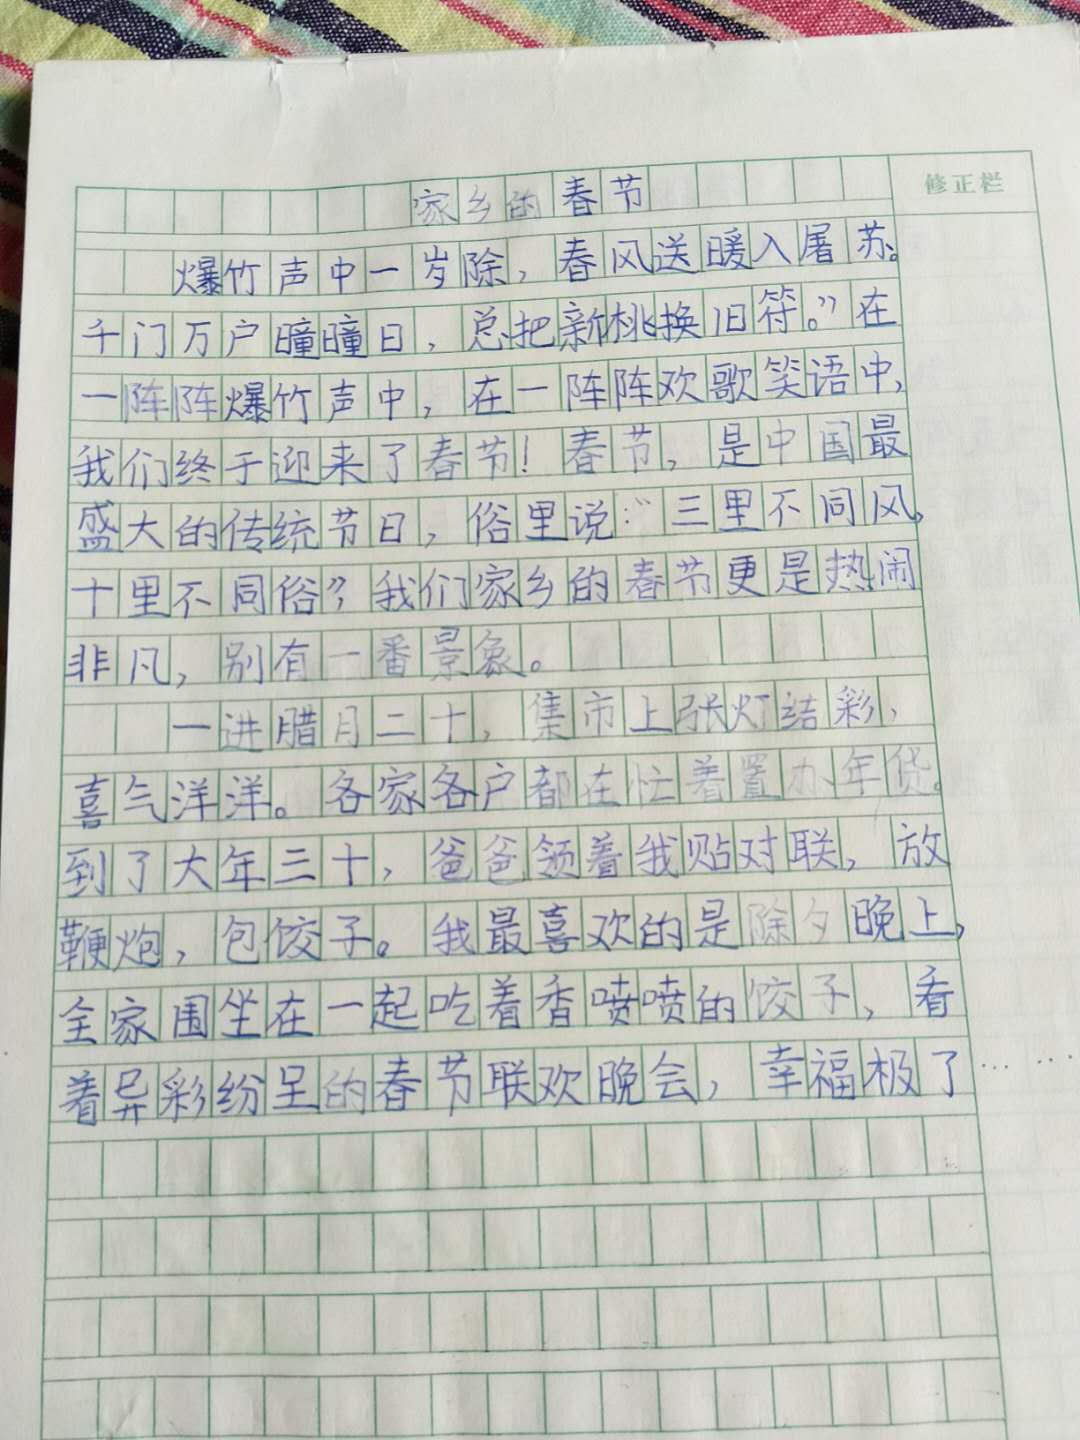 修正栏
家乡的春节
爆竹声中一岁除，春风送暖入屠苏。
千门万户曈曈日，总把新桃换旧符。”在
一阵阵爆竹声中，在一阵阵欢歌笑语中，
我们终于迎来了春节！春节，是中国最
盛大的传统节日，俗里说：“三里不同风，
十里不同俗”，我们家乡的春节更是热闹
非凡，别有一番景象。
一进腊月二十，集市上张灯结彩，
喜气洋洋。各家各户都在忙着置办年货。
到了大年三十，爸爸领着我贴对联，放
鞭炮，包饺子。我最喜欢的是除夕晚上，
全家围坐在一起吃着香喷喷的饺子，看
着异彩纷呈的春节联欢晚会，幸福极了……